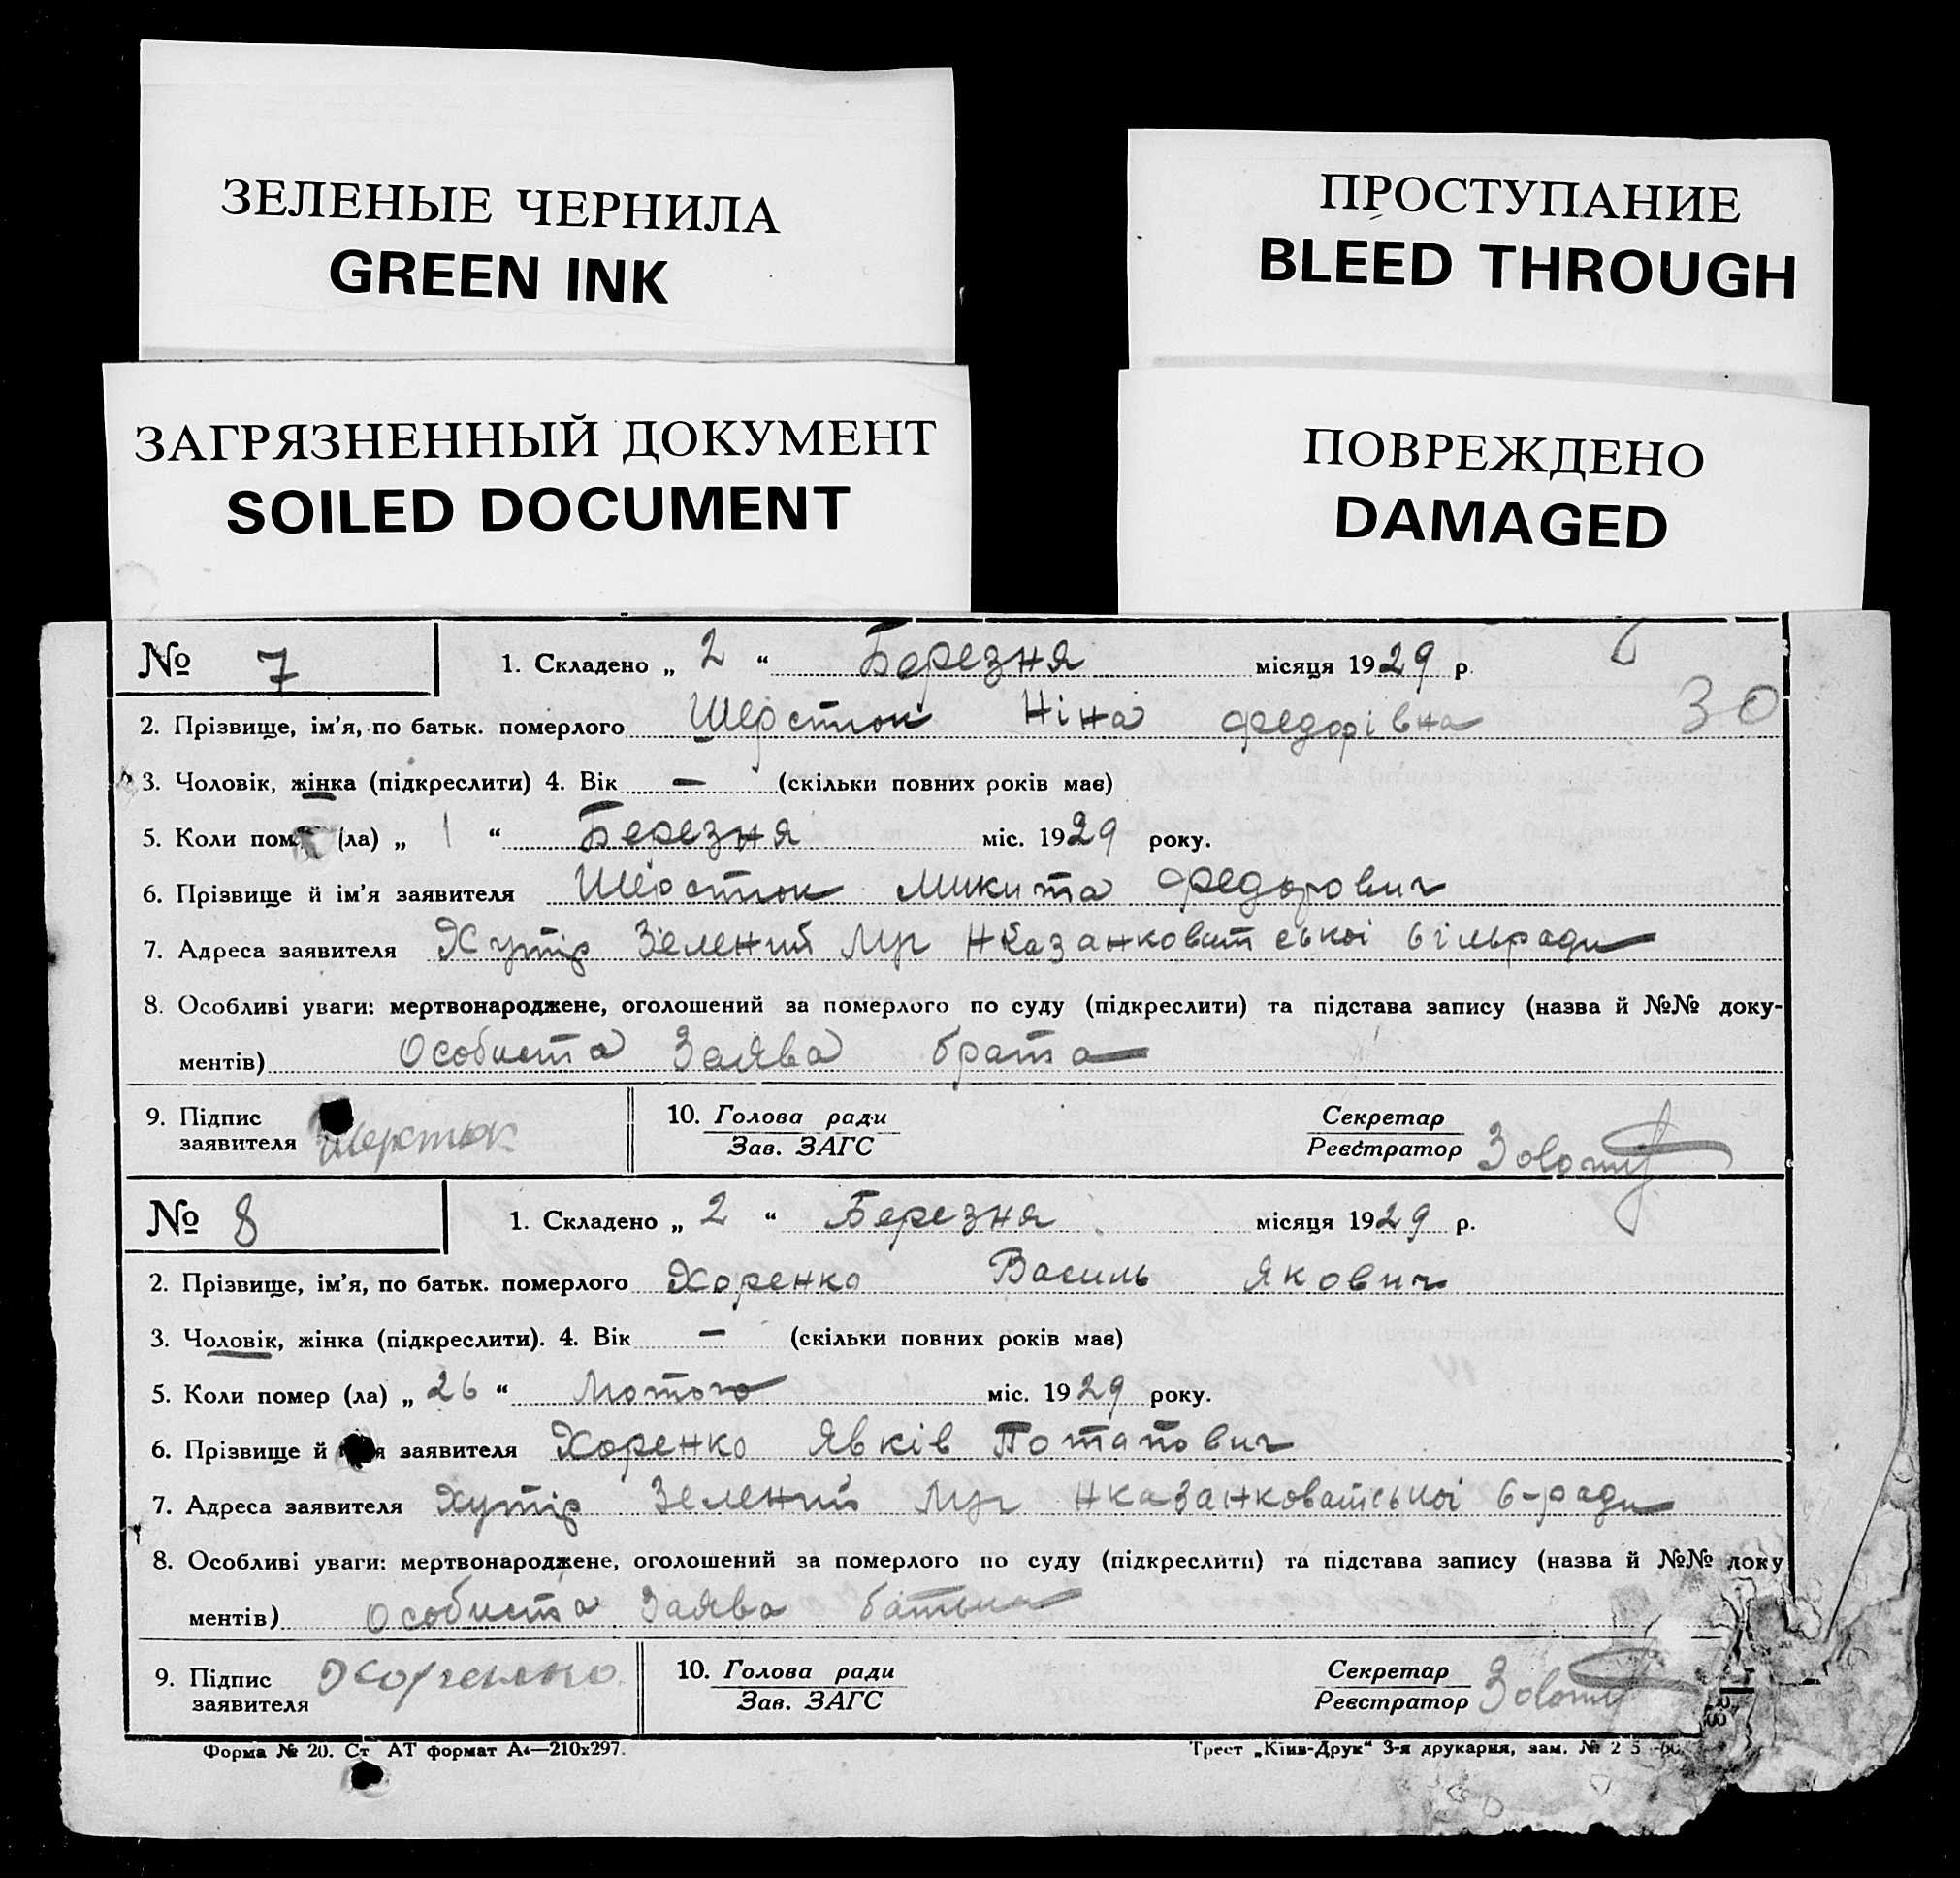 ЗЕЛЕНЫЕ ЧЕРНИЛА
GREEN INK
ПРОСТУПАНИЕ
BLEED THROUGH
ЗАГРЯЗНЕННЫЙ ДОКУМЕНТ
SOILED DOCUMENT
ПОВРЕЖДЕНО
DAMAGED
№ 7 1. Складено „ 2 “ Березня місяця 1929 р.
30
2. Прізвище, ім’я, по батьк. померлого Шерстюк Ніна Федорівна
3. Чоловік, жінка (підкреслити) 4. Вік — (скільки повних років має)
5. Коли пом (ла) „ 1 “ Березня міс. 1929 року.
6. Прізвище й ім’я заявителя Шерстюк Микита Федорович
7. Адреса заявителя Хутір Зелений Луг Нказанковатської сільради
8. Особливі уваги: мертвонароджене, оголошений за померлого по суду (підкреслити) та підстава запису (назва й №№ доку-
ментів) Особиста Заява брата
9. Підпис заявителя Шерстюк 10. Голова ради Зав. ЗАГС Секретар Реєстратор
№ 8 1. Складено „ 2 “ Березня місяця 1929 р.
2. Прізвище, ім’я, по батьк. померлого Хоренко Василь Якович
3. Чоловік, жінка (підкреслити). 4. Вік — (скільки повних років має)
5. Коли помер (ла) „ 26 “ Лютого міс. 1929 року.
6. Прізвище й я заявителя Хоренко Явків Потапович
7. Адреса заявителя Хутір Зелений Луг Нказанковатської с-ради
8. Особливі уваги: мертвонароджене, оголошений за померлого по суду (підкреслити) та підстава запису (назва й №№ доку
ментів) Особиста Заява батька
9. Підпис заявителя Хоренко 10. Голова ради Зав. ЗАГС Секретар Реєстратор
Форма № 20. Ст АТ формат А4—210x297.
Трест „Київ-Друк“ 3-я друкарня, зам. №